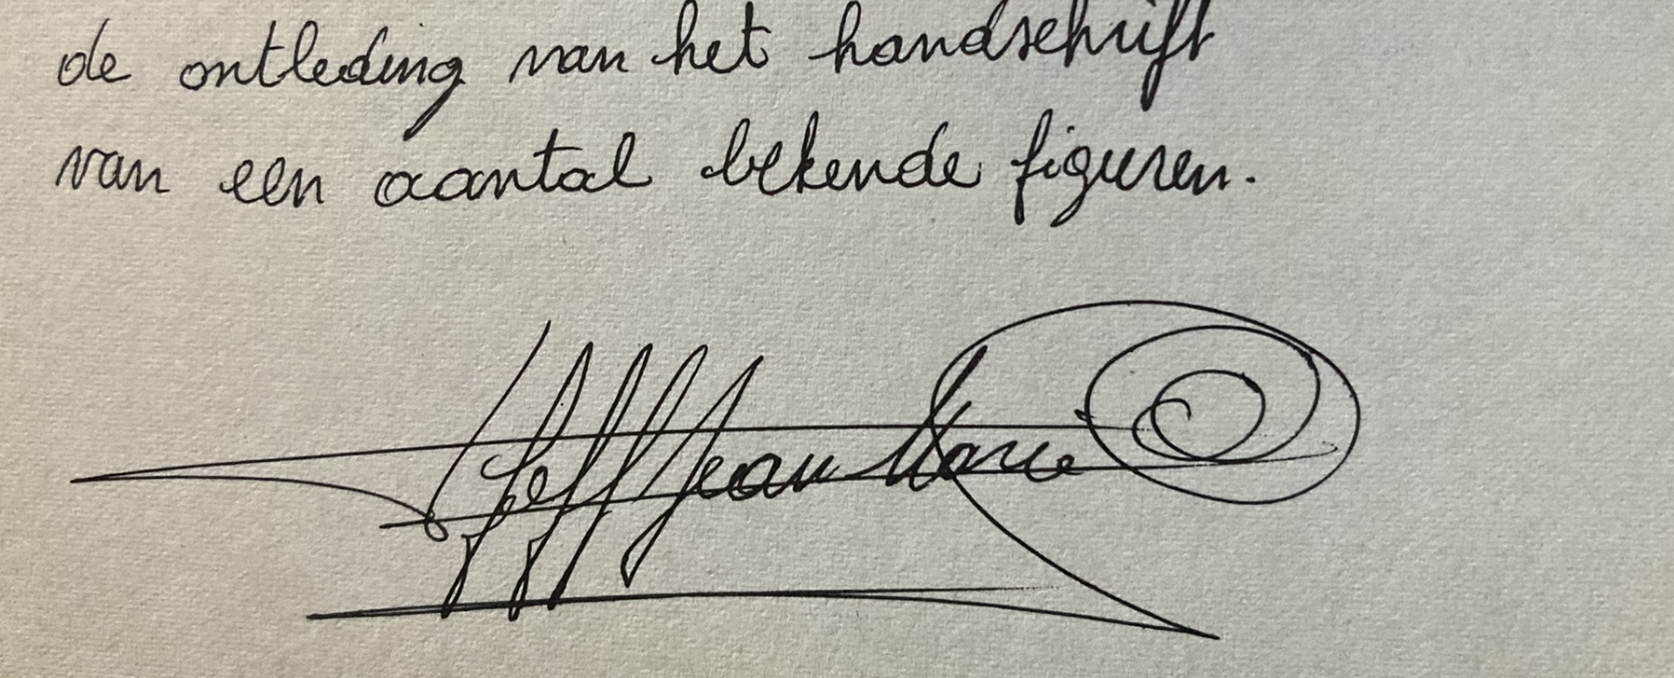 de ontleding van het handschrift
van een aantal bekende figuren.
Jean Marie